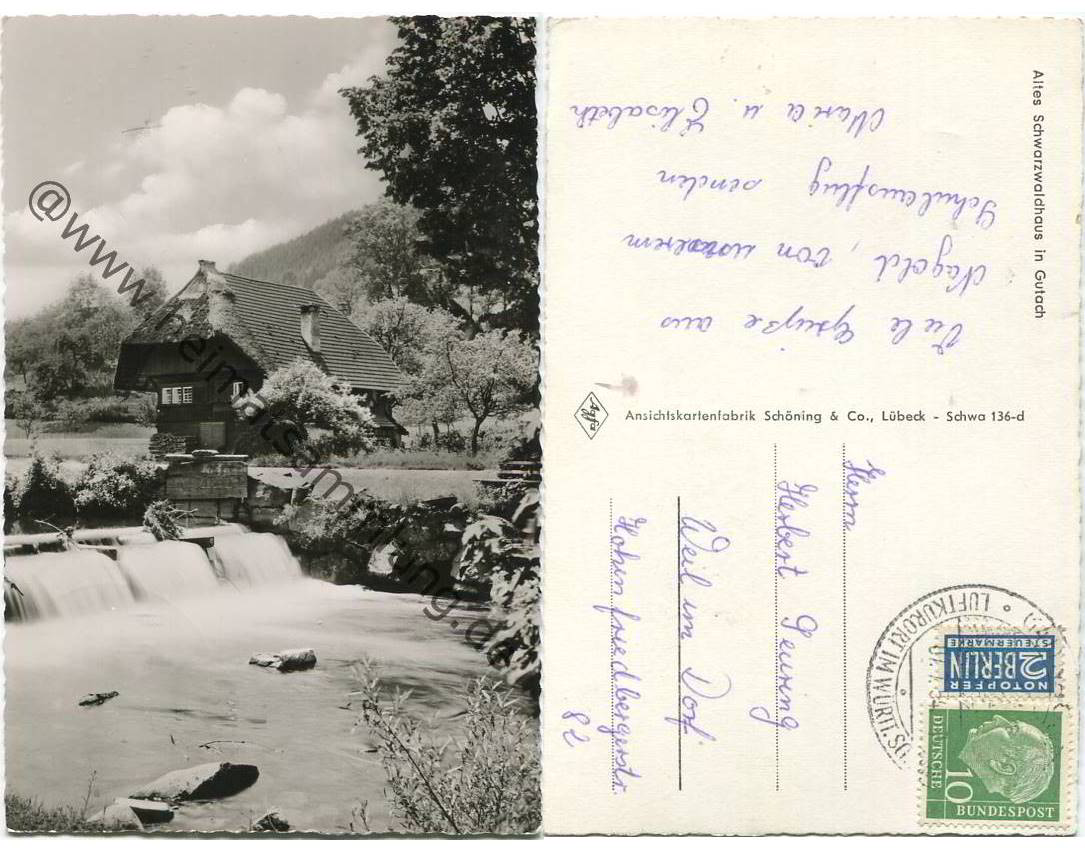 @www.heimatsammlung.de
Altes Schwarzwaldhaus in Gutach
Viele Grüße aus
Nagold, von unserem
Schulausflug senden
Maria u. Elisabeth
Agfa
Ansichtskartenfabrik Schöning & Co., Lübeck - Schwa 136-d
Herrn
Herbert Seuring
Weil im Dorf
Hohinfriedbergerstr.
82
LUFTKURORT IM WÜRTT.
NOTOPFER
2 BERLIN
STEUERMARKE
DEUTSCHE
10
BUNDESPOST